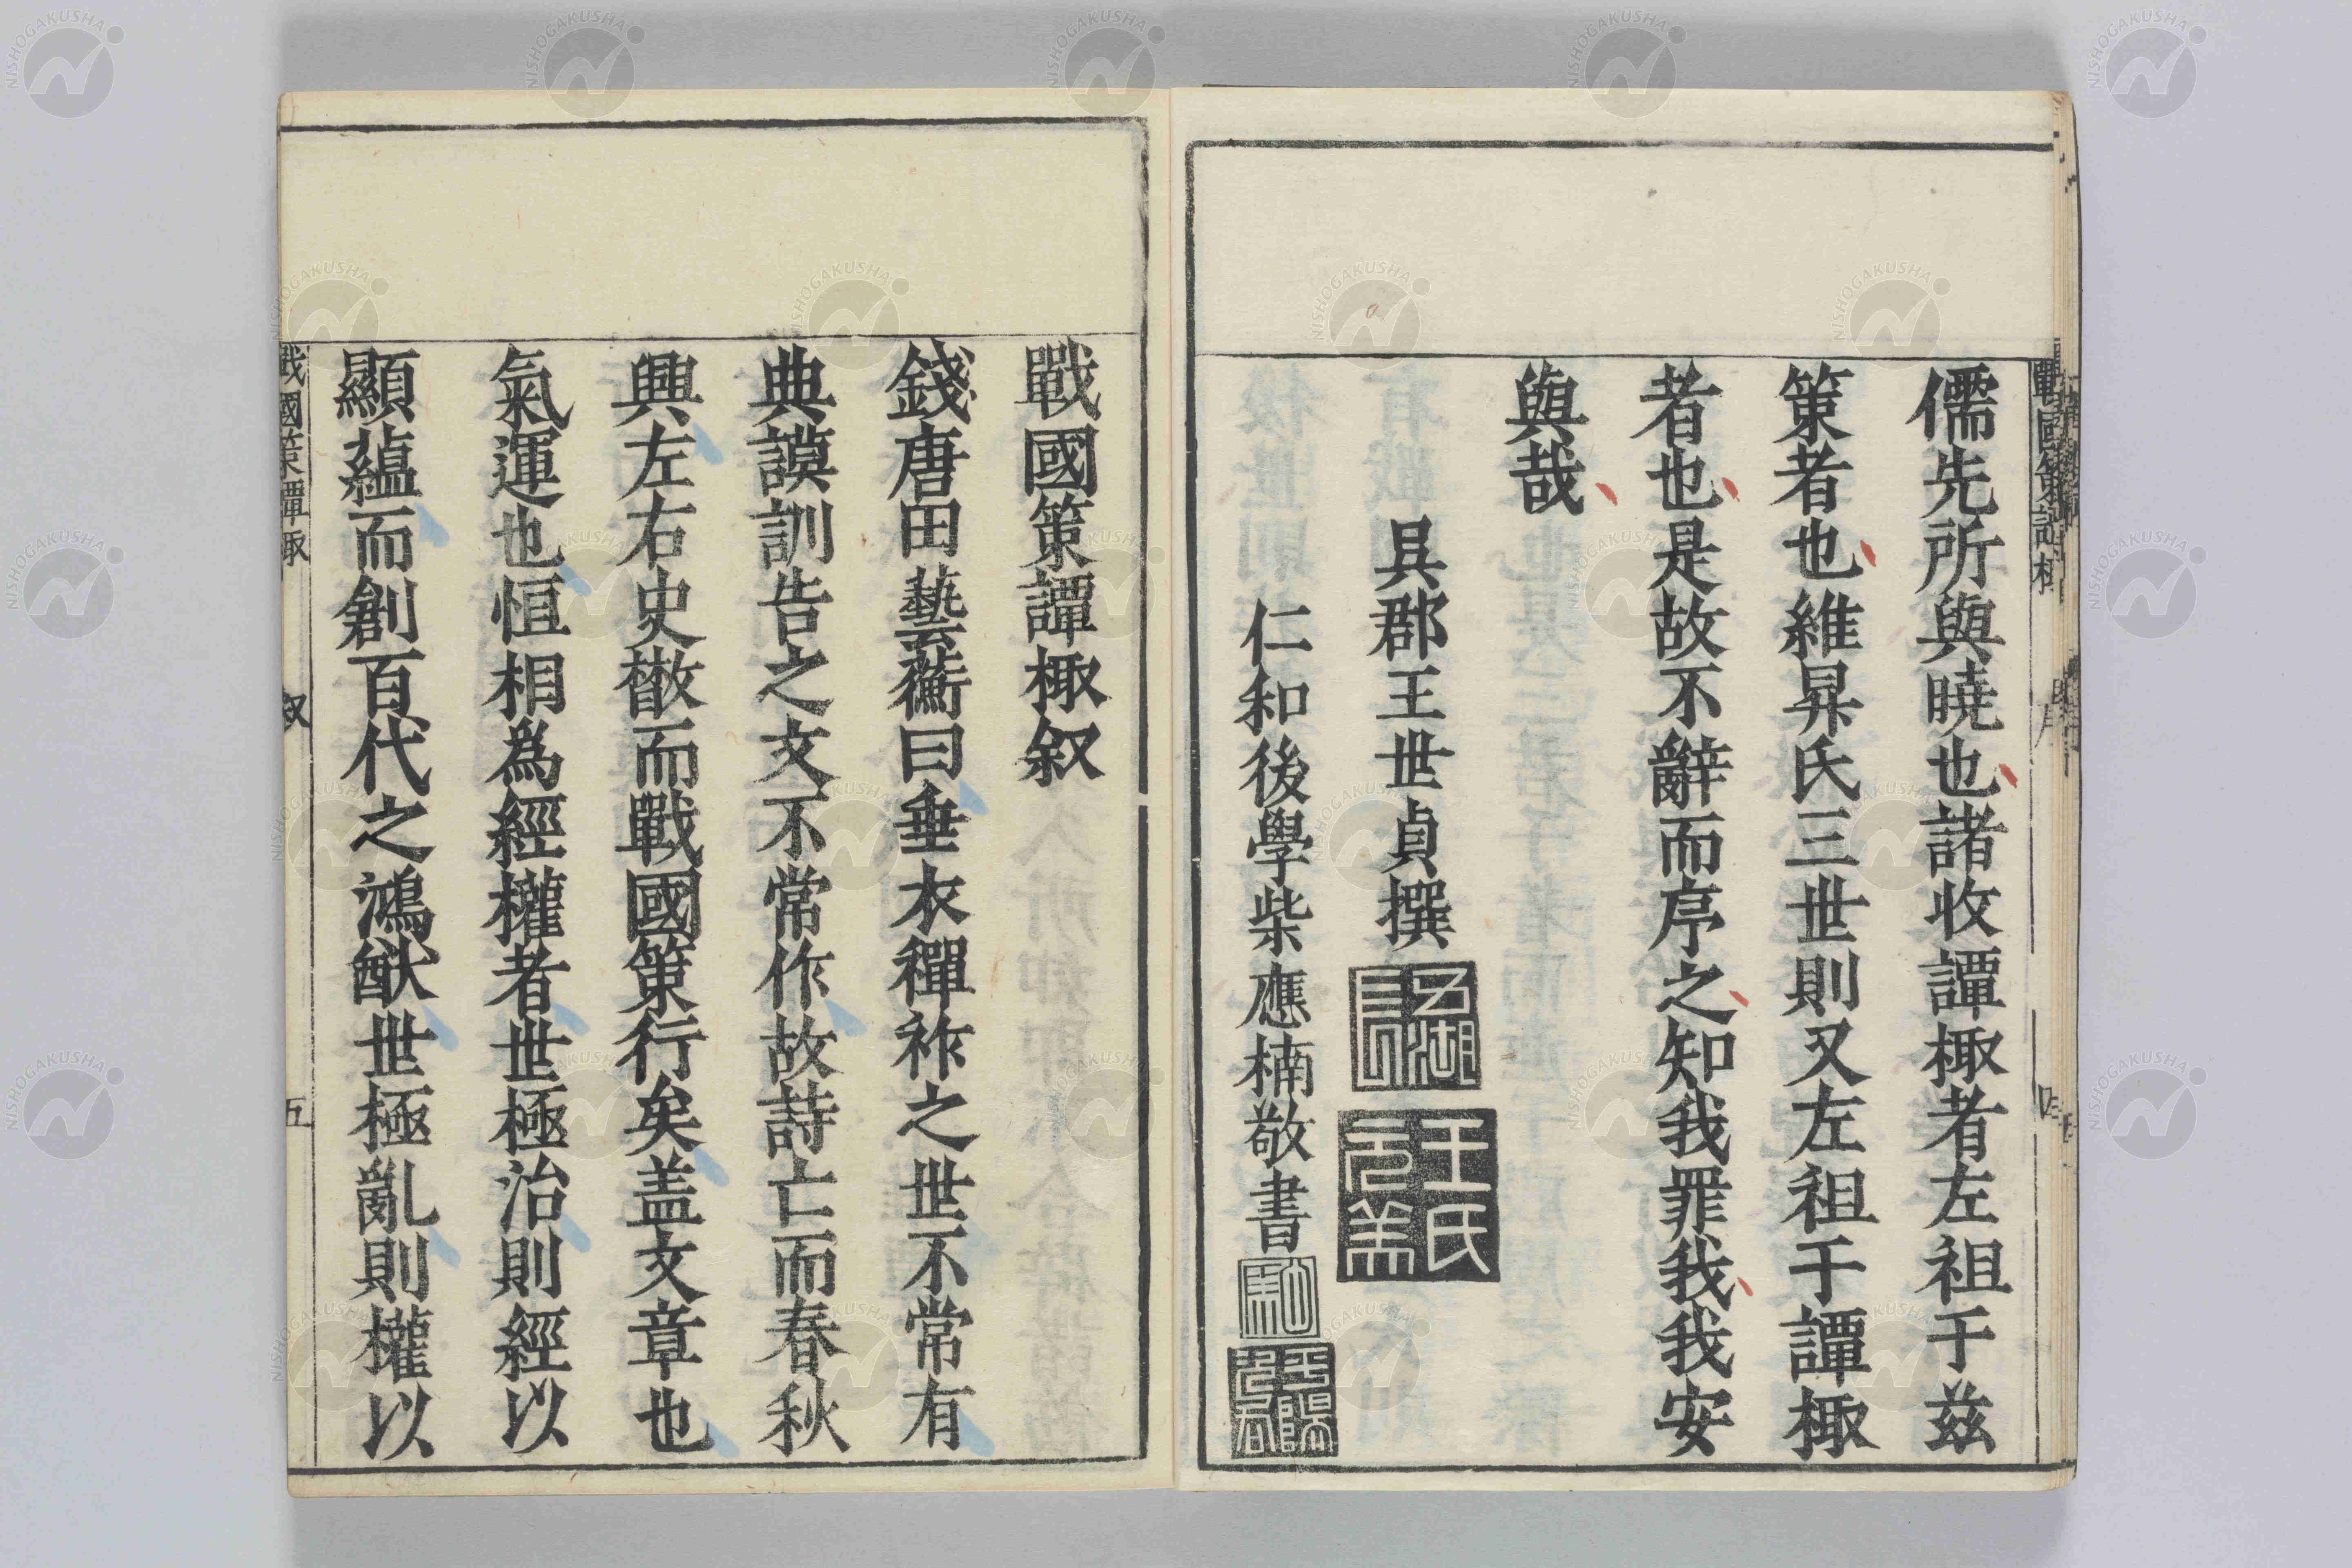 儒先所與曉也諸收譚棷者左祖于兹
策者也維昇氏三世則又左祖于譚棷
者也是故不辭而序之知我罪我我安
與哉
具郡王世貞撰
仁和後學柴應楠敬書
王氏元美
戰國策譚棷叙
錢唐田藝蘅曰垂衣禪祚之世不常有
典謨訓告之文不常作故詩亡而春秋
興左右史散而戰國策行矣盖文章也
氣運也恒相為經權者世極治則經以
顯蘊而創百代之鴻猷世極亂則權以
戰國策譚棷 叙 五
NISHOGAKUSHA